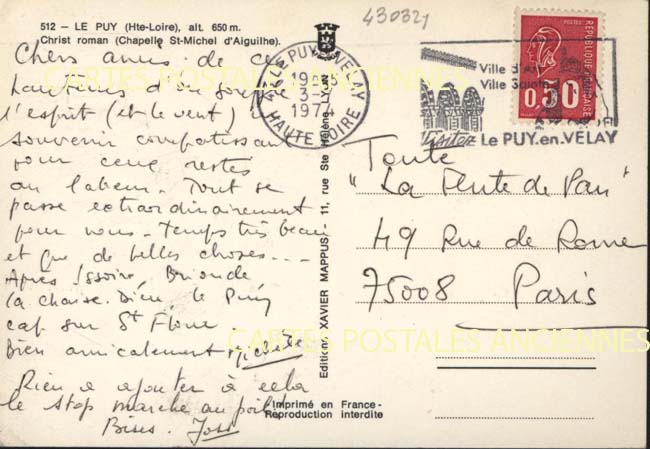 512 - LE PUY (Hte-Loire), alt. 650 m.
Christ roman (Chapelle St-Michel d'Aiguilhe).
430321
Chers amis de ces
hauteurs d'où souffle
l'esprit (et le vent)
souvenir compatissant
pour ceux restés
au labeur. Tout se
passe extraordinairement
pour nous. Temps très beau
et que de belles choses...
Après Issoire, Brioude
la Chaise-Dieu, le Puy
cap sur St Flour
Bien amicalement
Rien à ajouter à cela
le stop marche au poil
Bises. Joss
Editions XAVIER MAPPUS, 11, rue Ste Hélène, LYON
Imprimé en France -
Reproduction interdite
43 LE PUY EN VELAY
HAUTE LOIRE
Ville d'Art
Ville Sainte
Visitez Le PUY.en.VELAY
POSTES
REPUBLIQUE FRANÇAISE
0,50
Toute
"La Flûte de Pan"
49 Rue de Rome
75008 Paris
CARTES POSTALES ANCIENNES
CARTES POSTALES ANCIENNES